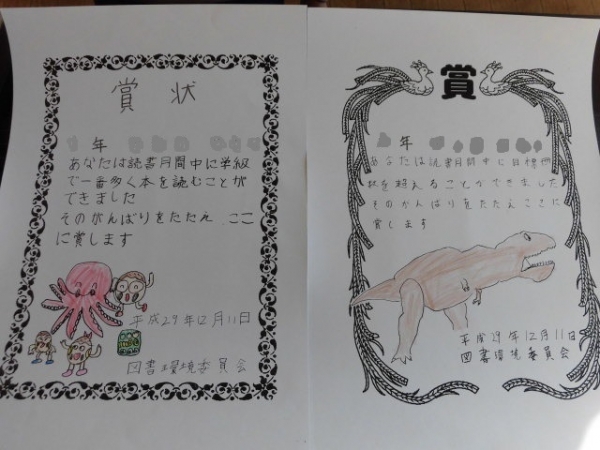 賞状
年
あなたは読書月間中に学級
で一番多く本を読むことが
できました
そのがんばりをたたえ、ここ
に賞します
平成29年12月11日
図書環境委員会
賞
年
あなたは読書月間中に目標冊
数を超えることができました
そのがんばりをたたえここに
賞します
平成29年12月11日
図書環境委員会